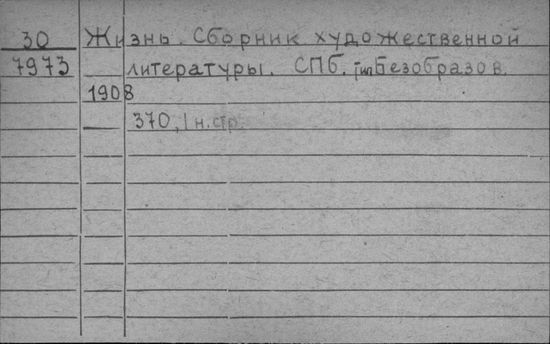 30 Жизнь. Сборник художественной
7973 литературы. СПб. тип Безобразов.
1908
370, 1 н. стр.